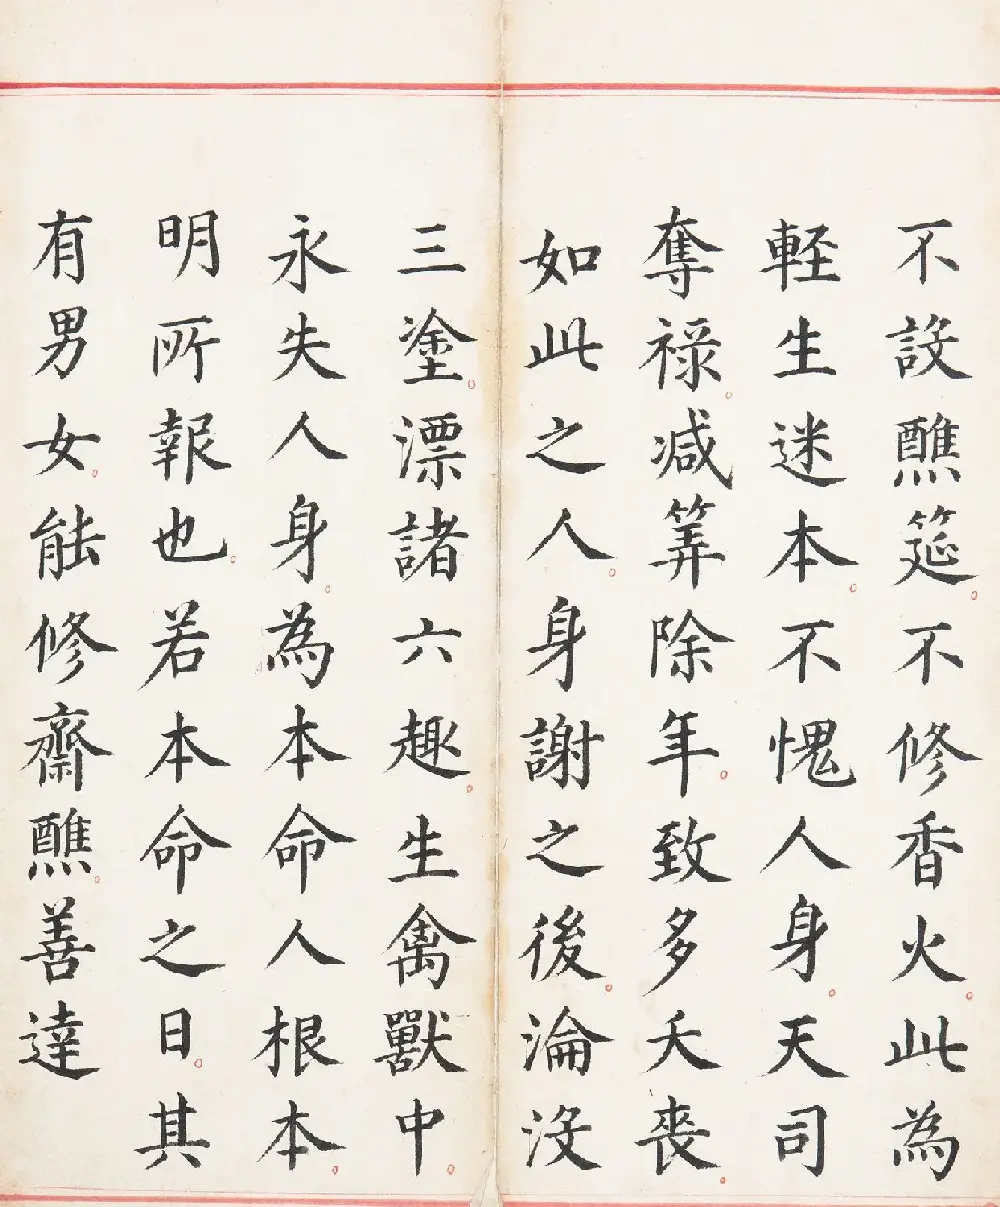 不設醮筵。不修香火。此為
輕生迷本。不愧人身。天司
奪祿。減筭除年。致多夭喪。
如此之人。身謝之後。淪沒
三塗。漂諸六趣。生禽獸中。
永失人身。為本命人根本。
明所報也。若本命之日。其
有男女。能修齋醮。善達